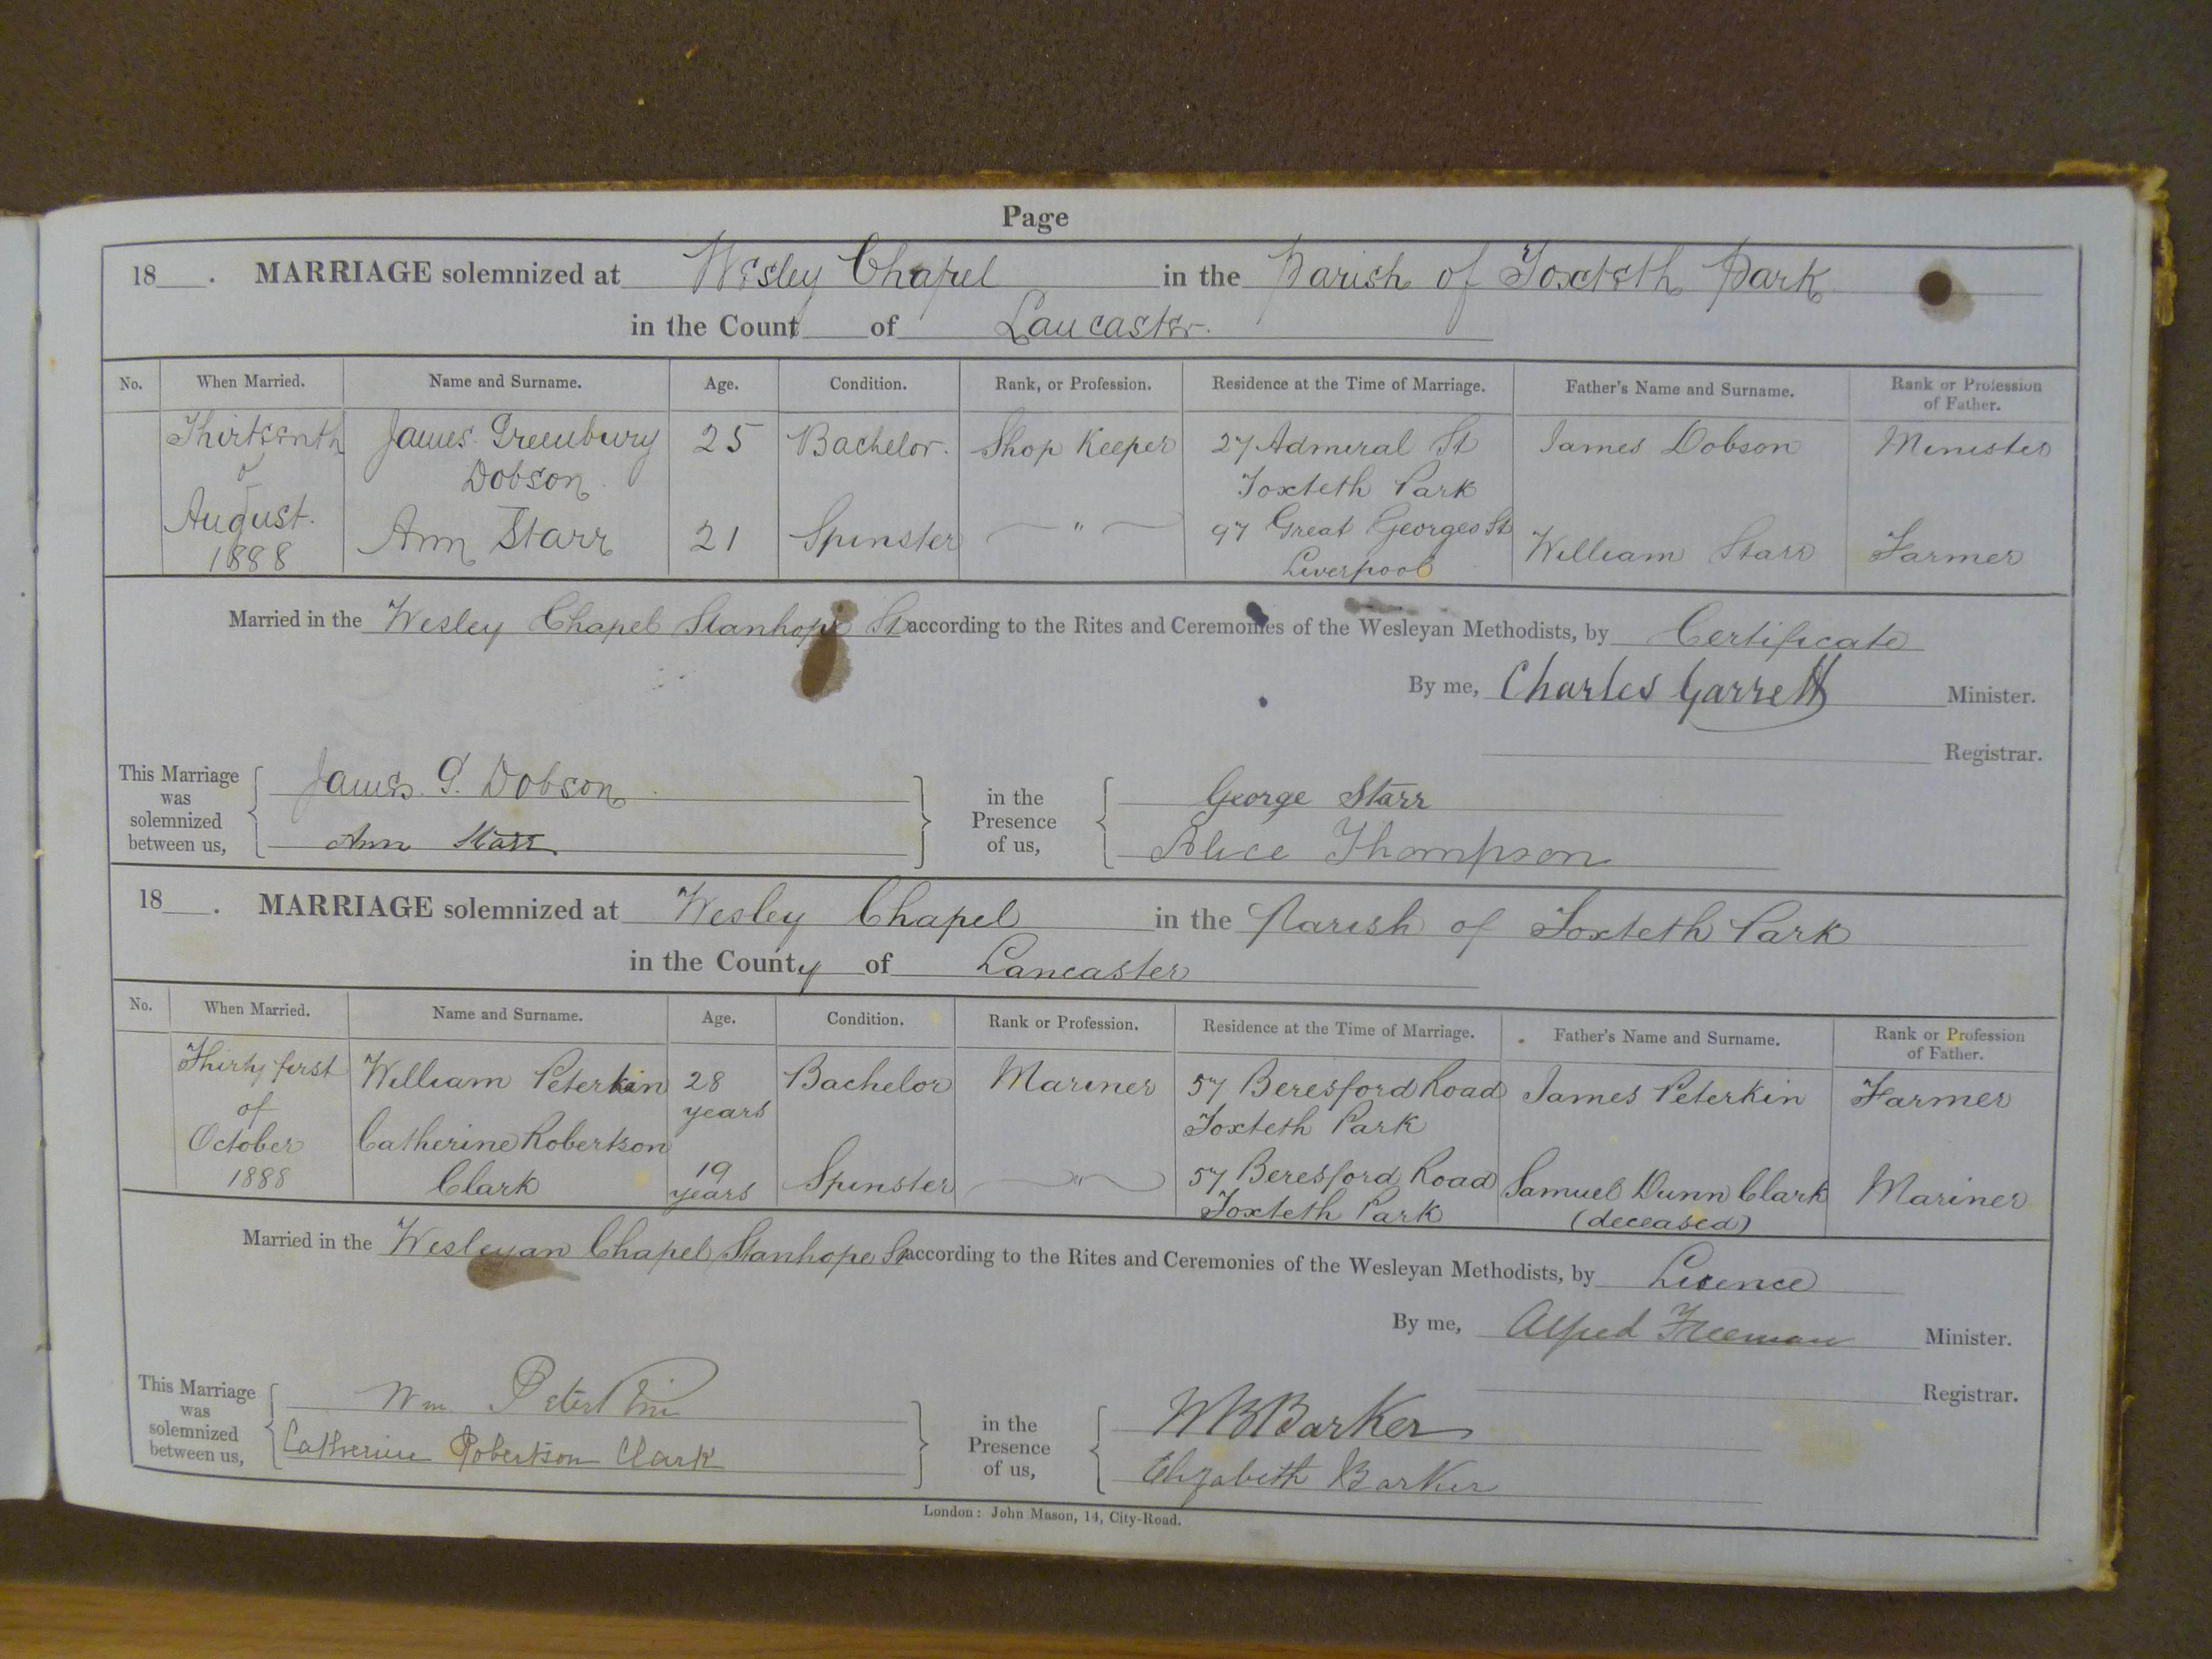 Page
18 . MARRIAGE solemnized at Wesley Chapel in the Parish of Toxteth Park
in the Count of Lancaster.
No. When Married. Name and Surname. Age. Condition. Rank, or Profession. Residence at the Time of Marriage. Father's Name and Surname. Rank or Profession of Father.
Thirteenth James Greenbury 25 Bachelor. Shop Keeper 27 Admiral St James Dobson Minister
of Dobson Toxteth Park
August. Ann Starr 21 Spinster " 97 Great Georges St William Starr Farmer
1888 Liverpool
Married in the Wesley Chapel Stanhope St according to the Rites and Ceremonies of the Wesleyan Methodists, by Certificate
By me, Charles Garrett Minister.
Registrar.
This Marriage was solemnized between us, James. G. Dobson in the Presence of us, George Starr
Ann Starr Alice Thompson
18 . MARRIAGE solemnized at Wesley Chapel in the Parish of Toxteth Park
in the County of Lancaster
No. When Married. Name and Surname. Age. Condition. Rank or Profession. Residence at the Time of Marriage. Father's Name and Surname. Rank or Profession of Father.
Thirty first William Peterkin 28 Bachelor Mariner 57 Beresford Road James Peterkin Farmer
of years Toxteth Park
October Catherine Robertson
1888 Clark 19 years Spinster " 57 Beresford Road Samuel Dunn Clark Mariner
Toxteth Park (deceased)
Married in the Wesleyan Chapel Stanhope St according to the Rites and Ceremonies of the Wesleyan Methodists, by Licence
By me, Alfred Freeman Minister.
Registrar.
This Marriage was solemnized between us, Wm. Peterkin in the Presence of us, W B Barker
Catherine Robertson Clark Elizabeth Barker
London: John Mason, 14, City-Road.